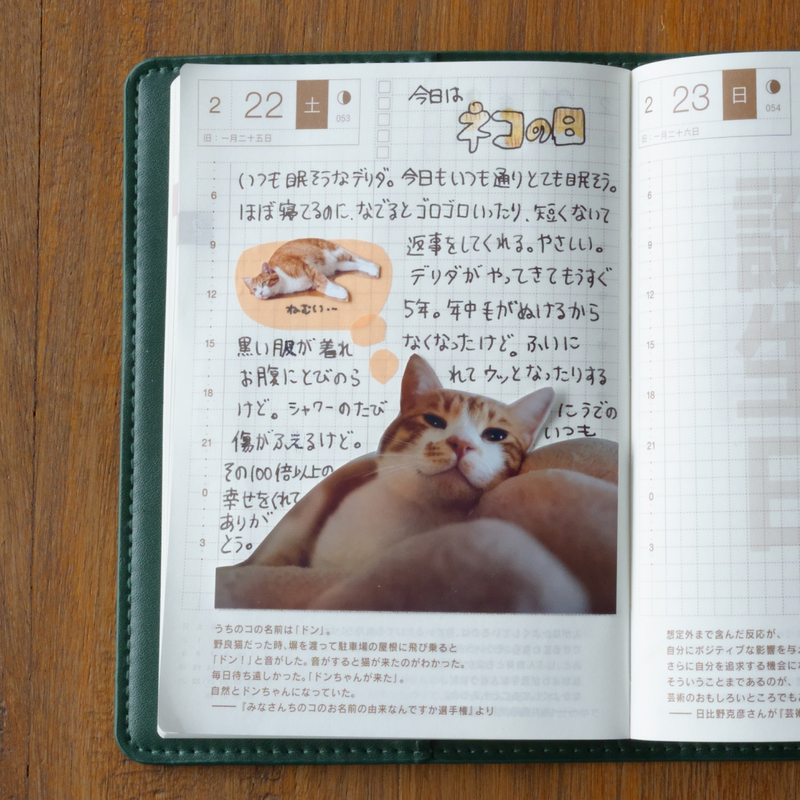 2 22 土
053
旧:一月二十五日
今日は
ネコの日
いつも眠そうなデリダ。今日もいつも通りとても眠そう。
ほぼ寝てるのに、なでるとゴロゴロいったり、短くないて
返事をしてくれる。やさしい。
デリダがやってきてもうすぐ
5年。年中毛がぬけるから
なくなったけど。ふいに
れてウッとなったりする
にうでの
いつも
ねむい…
黒い服が着れ
お腹にとびのら
けど。シャワーのたび
傷がふえるけど。
その100倍以上の
幸せをくれて
ありが
とう。
6
9
12
15
18
21
0
3
うちのコの名前は「ドン」。
野良猫だった時、塀を渡って駐車場の屋根に飛び乗ると
「ドン!」と音がした。音がすると猫が来たのがわかった。
毎日待ち遠しかった。「ドンちゃんが来た」。
自然とドンちゃんになっていた。
──『みなさんちのコのお名前の由来なんですか選手権』より
2 23 日
054
旧:一月二十六日
6
9
12
15
18
21
0
3
想定外まで含んだ反応が、
自分にポジティブな影響を与え
さらに自分を追求する機会に
そういうことまであるのが、
芸術のおもしろいところでも
──日比野克彦さんが『芸術